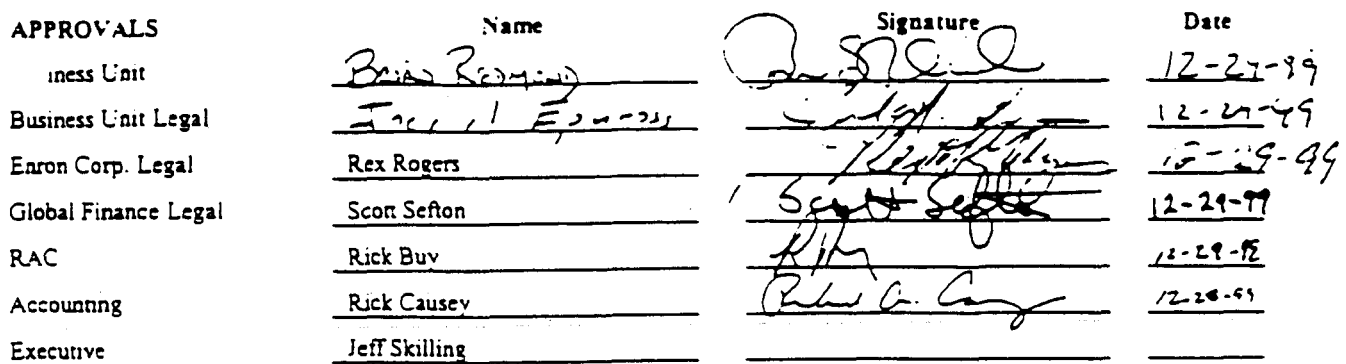 APPROVALS Name Signature Date
iness Unit Brian Redmond 12-29-99
Business Unit Legal 12-29-99
Enron Corp. Legal Rex Rogers
Global Finance Legal Scott Sefton Scott Sefton 12-29-99
RAC Rick Buy
Accounting Rick Causey 12-28-99
Executive Jeff Skilling